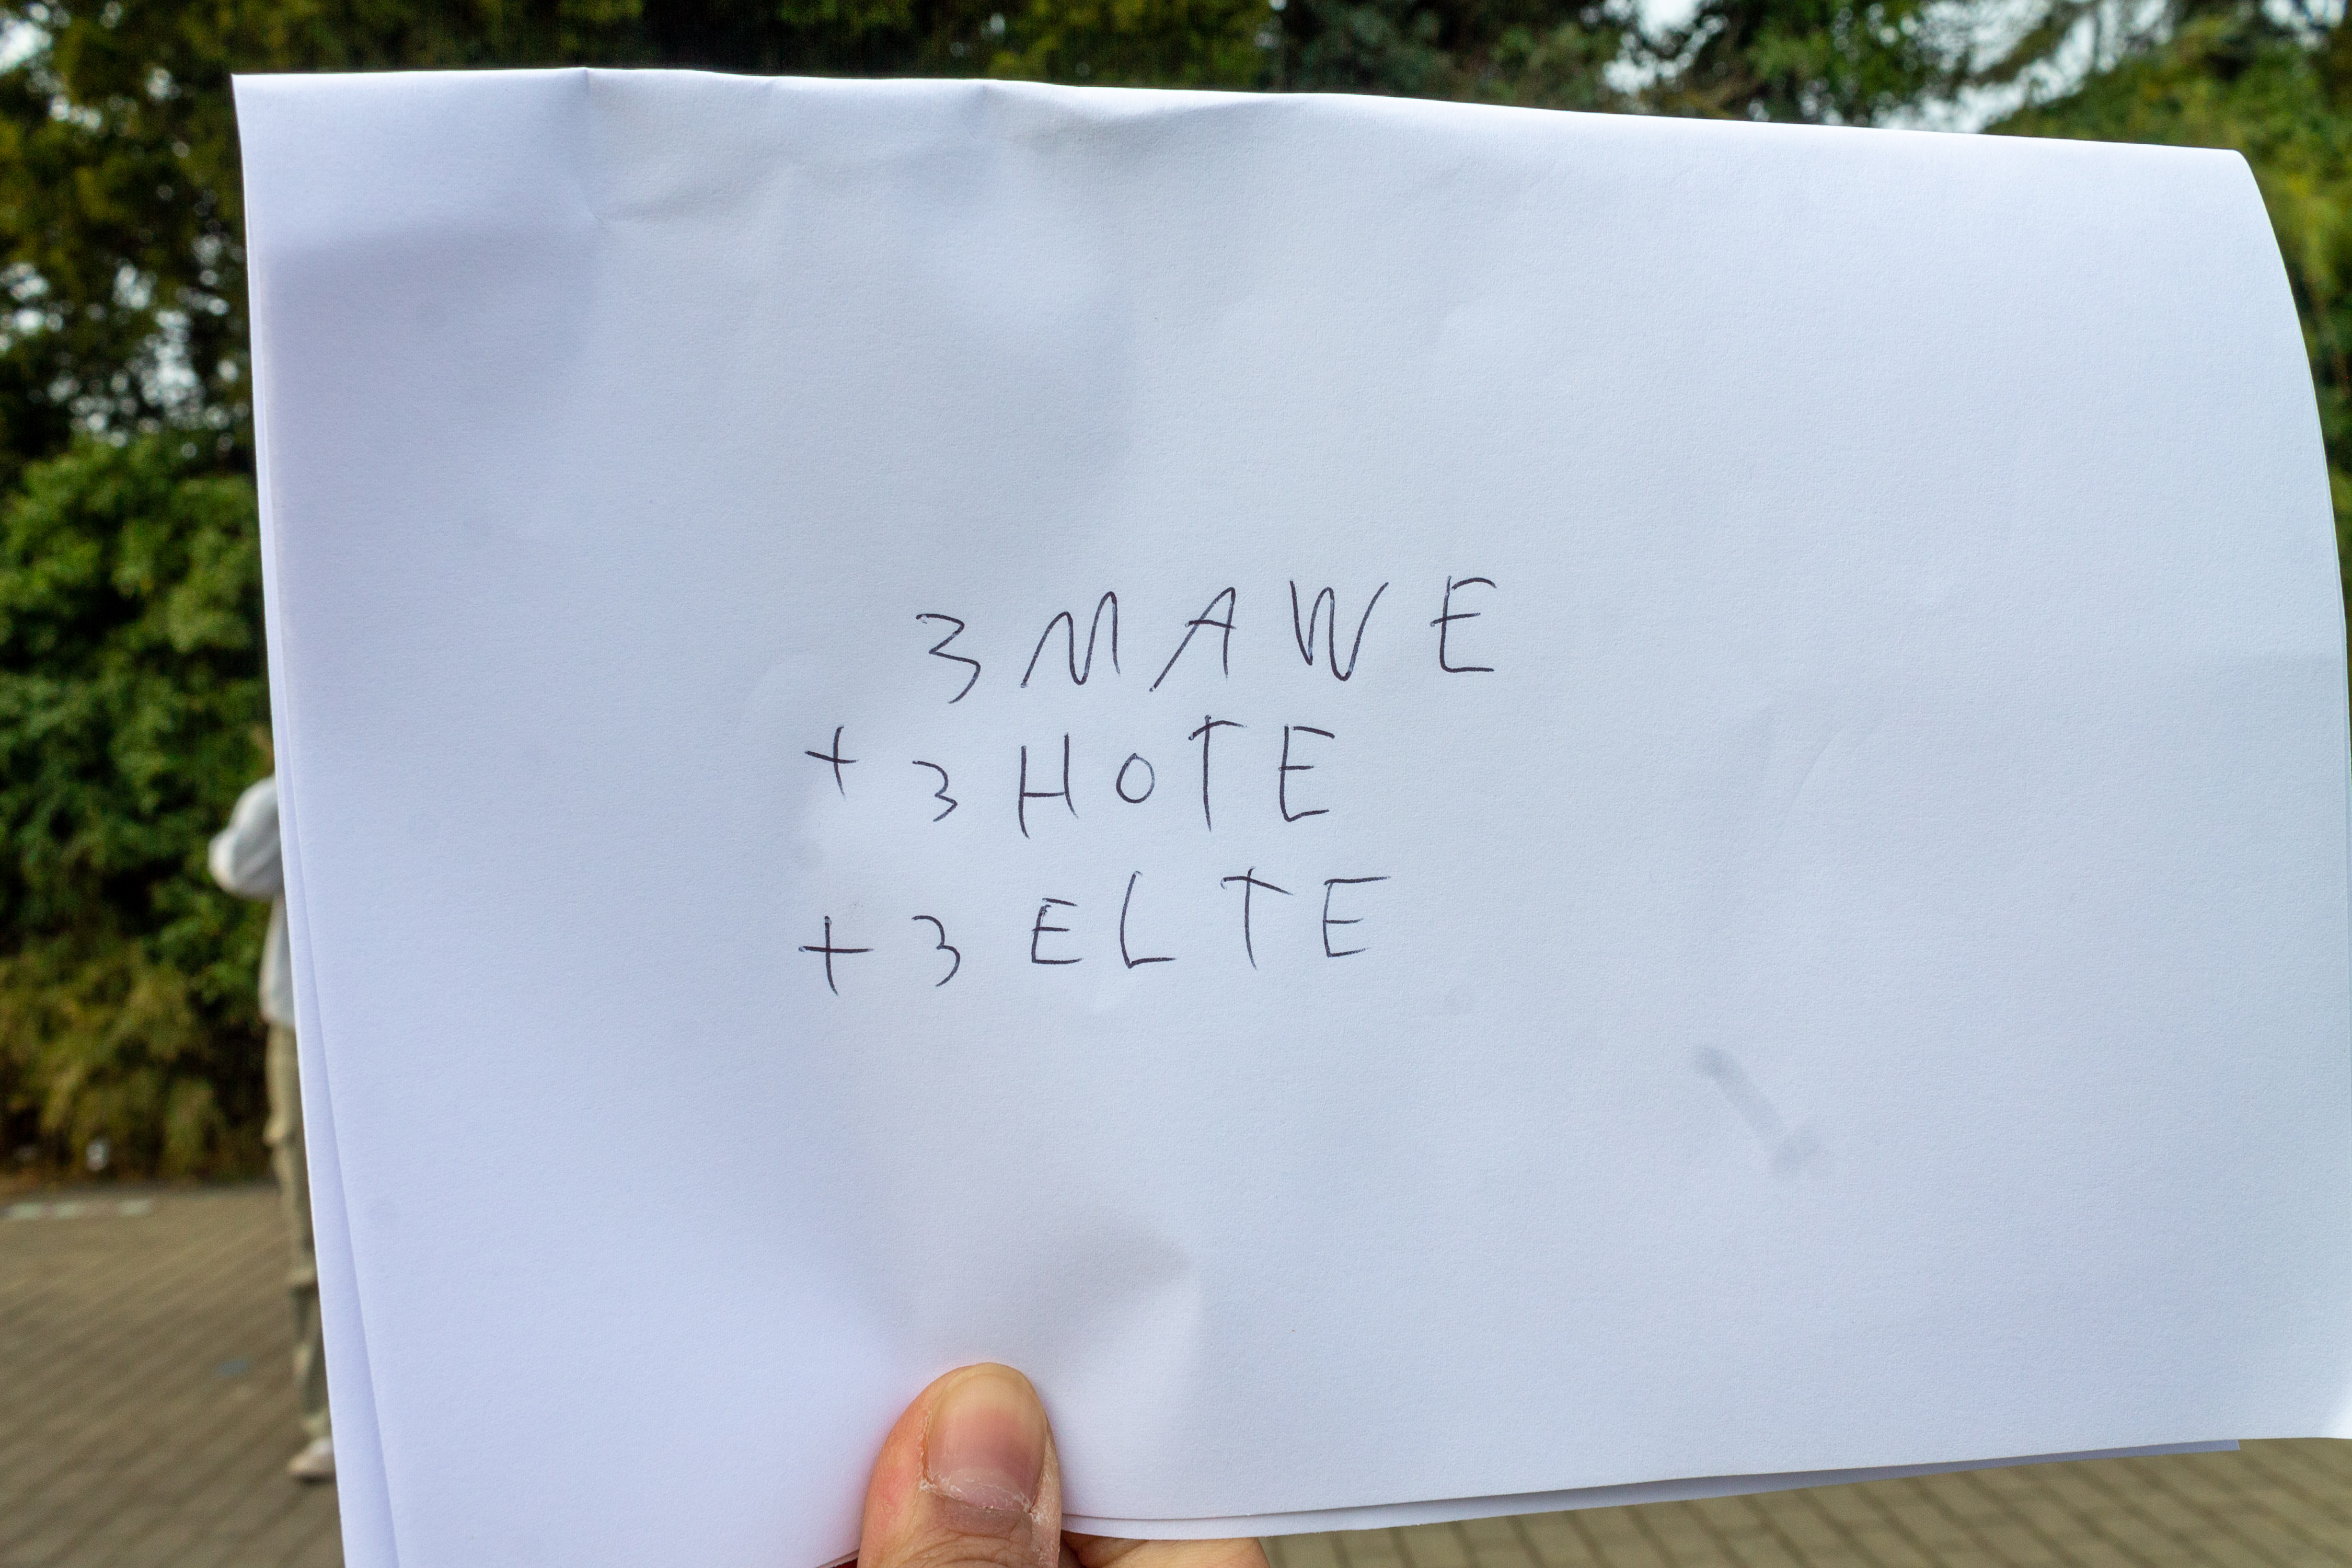 3 MAWE
+ 3 HOTE
+ 3 ELTE